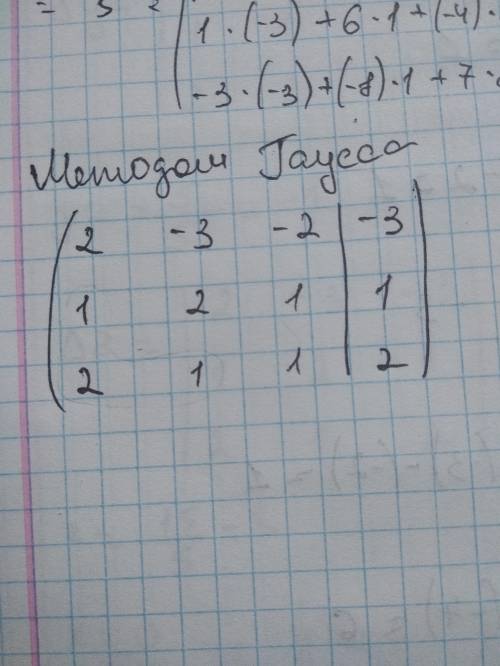 = 3 · 1 · (-3) + 6 · 1 + (-4) ·
-3 · (-3) + (-8) · 1 + 7 ·
Методом Гаусса
2 -3 -2 | -3
1 2 1 | 1
2 1 1 | 2